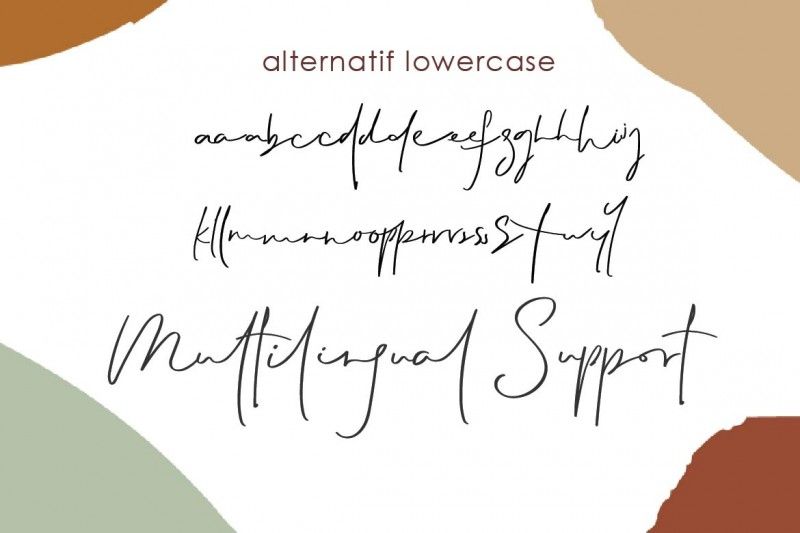 alternatif lowercase
aaabccdddeeefgghhhiij
kllmmmnnooppprrrrsssStwyy
Multilingual Support